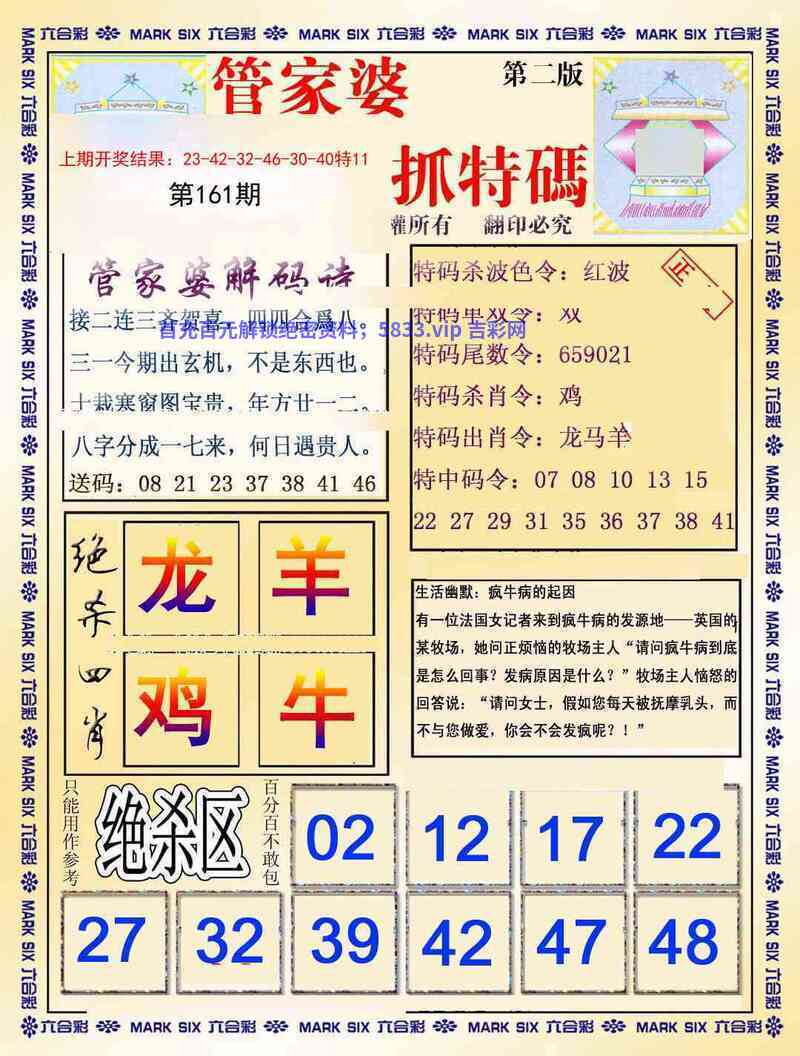 MARK SIX 六合彩 MARK SIX 六合彩 MARK SIX 六合彩 MARK SIX 六合彩
管家婆
第二版
上期开奖结果：23-42-32-46-30-40特11
第161期
抓特碼
所有 翻印必究
管家婆解码诗
接二连三齐贺喜，四四合爲八。
首充百元解锁绝密资料；5833.vip 吉彩网
三一今期出玄机，不是东西也。
十载寒窗图宝贵，年方廿一二。
八字分成一七来，何日遇贵人。
送码：08 21 23 37 38 41 46
特码杀波色令：红波
正
特码单双令：双
特码尾数令：659021
特码杀肖令：鸡
特码出肖令：龙马羊
特中码令：07 08 10 13 15
22 27 29 31 35 36 37 38 41
绝杀四肖
龙 羊
鸡 牛
生活幽默：疯牛病的起因
有一位法国女记者来到疯牛病的发源地——英国的
某牧场，她问正烦恼的牧场主人“请问疯牛病到底
是怎么回事？发病原因是什么？”牧场主人恼怒的
回答说：“请问女士，假如您每天被抚摩乳头，而
不与您做爱，你会不会发疯呢？！”
只能用作参考
绝杀区
百分百不敢包
02 12 17 22
27 32 39 42 47 48
六合彩 MARK SIX 六合彩 MARK SIX 六合彩 MARK SIX 六合彩 MARK SIX 六合彩